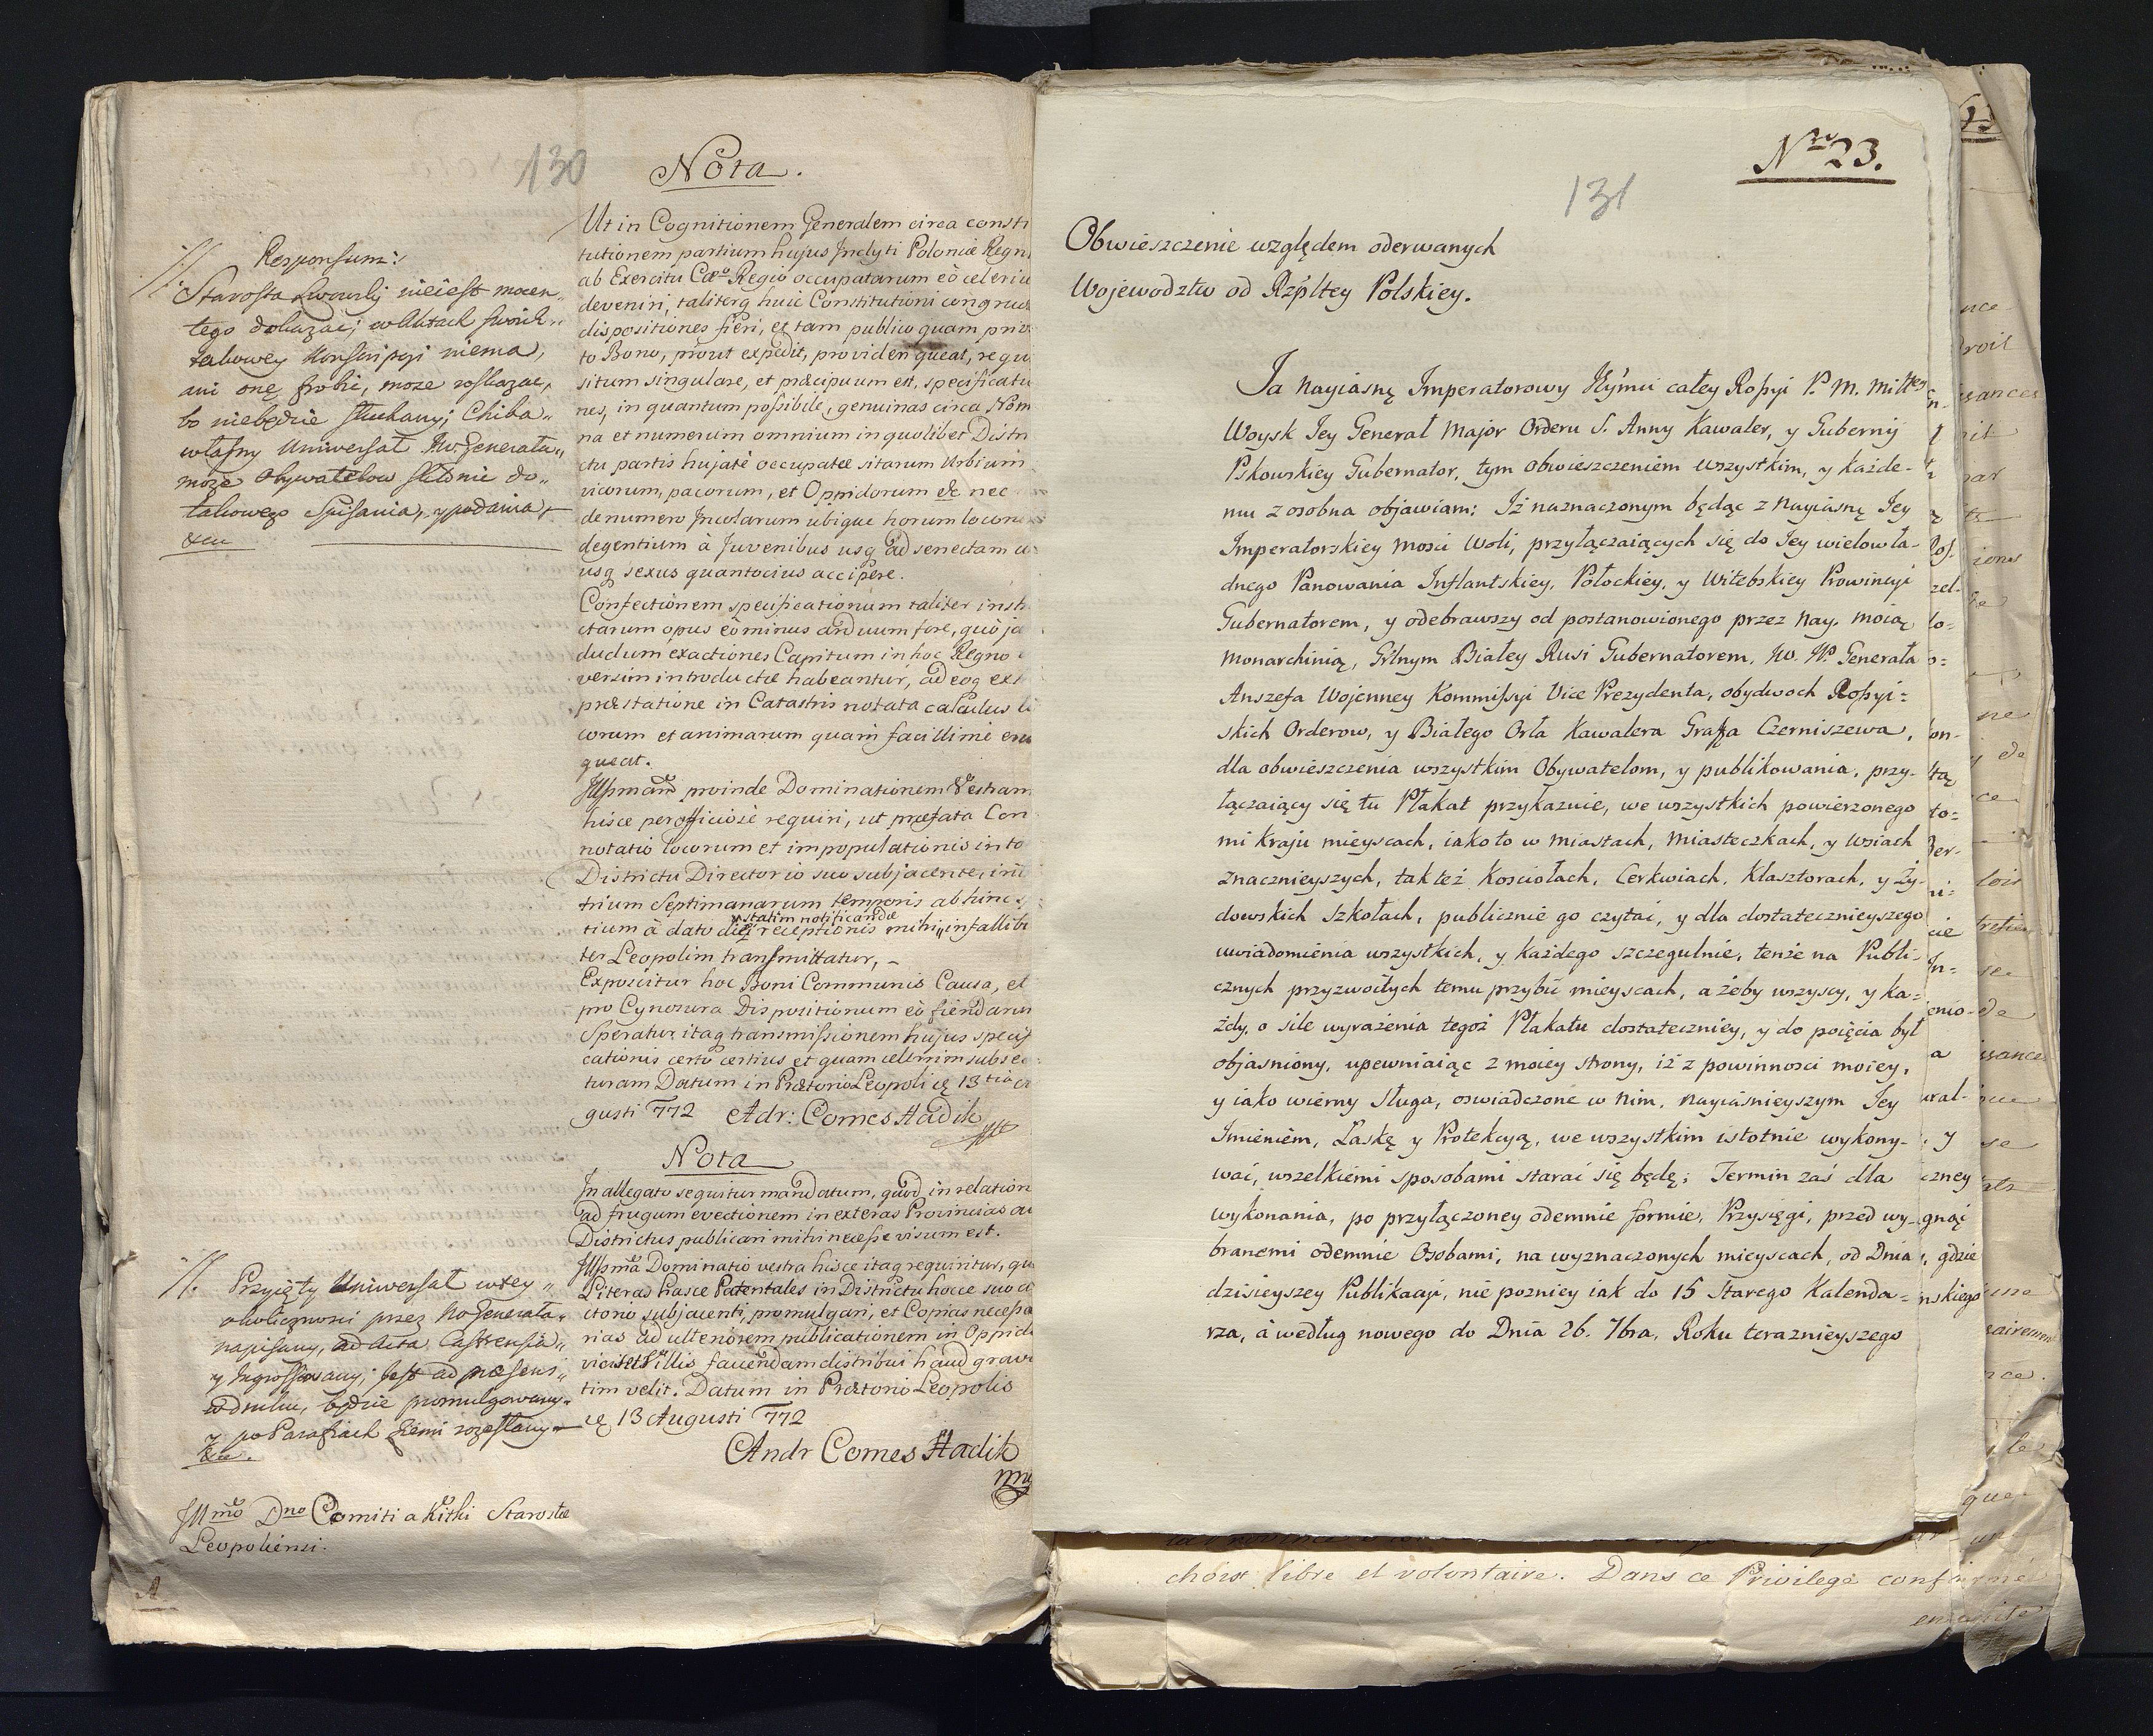 130
Nota.
Ut in Cognitionem Generalem circa consti
tutionem partium hujus Inclyti Poloniæ Regni
ab Exercitu Cæo Regio occupatarum eò celeriu
deveniri, taliterq huic Constitutioni congrua
dispositiones fieri, et tam publico quam priv
to Bono, prout expedit, provideri queat, requi
situm singulare, et præcipuum est, specificatio
nes, in quantum possibile, genuinas circa Nom
na et numerum omnium in quolibet Distri
ctu partis hujatis occupatæ sitarum Urbium
vicorum, pacorum, et Oppidorum &c nec
de numero Incolarum ubique horum locorum
degentium à Juvenibus usq ad senectam
usq sexus quantocius accipere.
Confectionem specificationum taliter instr
ctarum opus eò minus arduum fore, quò ja
dudum exactiones Capitum in hoc Regno
versim introductæ habeantur, ad eoq ex
præstatione in Catastris notata calculus lo
corum et animarum quam facillimè erui
queat.
Illsmam proinde Dominationem Vestram
hisce perofficiosè requiri, ut præfata Con
notatio locorum et impopulationis in to
Districtu Directorio suo subjacente, int
trium Septimanarum temporis ab hinc
statim notificandæ
tium à dato diei receptionis mihi infallibi
ter Leopolim transmittatur, –
Exposcitur hoc Boni Communis Causa, et
pro Cynosura Dispositionum eò fiendarum
Speratur itaq transmissionem hujus specifi
cationis certò certius et quam celerrim subse
turam Datum in Prætorio Leopoli 13tia
gusti 772 Adr: Comes Hadik
Nota
In allegato sequitur mandatum, quod in relatione
ad frugum evectionem in exteras Provincias
Districtus publicari mihi necesse visum est.
Illsma Dominatio vestra hisce itaq requiritur, qu
Literas hasce Patentales in Districtu hocce suo
ctorio subjacenti, promulgari, et Copias necessa
rias ad ulteriorem publicationem in Oppidi
vicis et Villis faciendam distribui haud grava
tim velit. Datum in Prætorio Leopolis
13 Augusti 772
Andr Comes Hadik
mp
Responsum:
Starosta Lwowski nieiest mocen
tego dokazac; w Aktach swoich
takowey Konskripcyi niema,
ani onę zrobic, moze roskazac,
bo niebędzie słuchany; Chiba
własny Uniwersał Jw. Generała
może Obywatelow skłonic do
takowego Spisania, y podania
&cu
Przyięty Uniwersał wtey
okolicznosci przez Jw Generała
napisany, ad Acta Castrensia
y Ingrossowany; Jest ad præsens
w druku, będzie promulgowany
y po Parafiach Ziemi rozesłany
&cu.
Jllmo Dno Comiti a Kithi Starostæ
Leopoliensi.
Nro 23.
131
Obwieszczenie względem oderwanych
Wojewodztw od Rzpltey Polskiey.
Ja Nayiasnę Imperatorowy Jeymci całey Rossyi P. M. Mittey
Woysk Jey Generał Major Orderu S. Anny Kawaler, y Gubernij
Pskowskiey Gubernator, tym obwieszczeniem wszystkim, y każde-
mu z osobna objawiam: Iż naznaczonym będąc z Nayiasnę Jey
Imperatorskiey Mosci Woli, przyłączaiących się do Jey wielowła-
dnego Panowania Inflantskiey, Połockiey, y Witebskiey Prowincyi
Gubernatorem, y odebrawszy od postanowionego przez Nay. moią
Monarchinią, Grlnym Białey Rusi Gubernatorem, Jw. JP. Generała
Anszefa Wojenney Kommissyi Vice Prezydenta, obydwoch Rossyi=
skich Orderow, y Białego Orła Kawalera Graffa Czerniszewa,
dla obwieszczenia wszystkim Obywatelom, y publikowania, przy-
łączaiący się tu Płakat przykazuie, we wszystkich powierzonego
mi Kraju mieyscach, iako to w Miastach, Miasteczkach, y Wsiach
znacznieyszych, tak też Kosciołach, Cerkwiach, Klasztorach, y Ży-
dowskich Szkołach, publicznie go czytać, y dla dostatecznieyszego
uwiadomienia wszystkich, y każdego szczegulnie, tenże na Publi-
cznych przyzwoitych temu przybić mieyscach, a żeby wszyscy, y ka=
żdy, o sile wyrażenia tegoż Płakatu dostateczniey, y do poięcia był
objasniony, upewniaiąc z moiey strony, iż z powinnosci moiey,
y iako wierny Sługa, oswiadczone w nim, Nayiasnieyszym Jey
Imieniem, Łaskę y Protekcyą, we wszystkim istotnie wykony-
wać, wszelkiemi sposobami starać się będę; Termin zaś dla
wykonania, po przyłączoney odemnie formie, Przysięgi, przed wy-
branemi odemnie Osobami, na wyznaczonych mieyscach, od Dnia
dzisieyszey Publikacyi, nie pozniey iak do 15 Starego Kalenda=
rza, à według nowego do Dnia 26. 7bra, Roku teraznieyszego
choix libre et volontaire. Dans ce Privilege confirmé